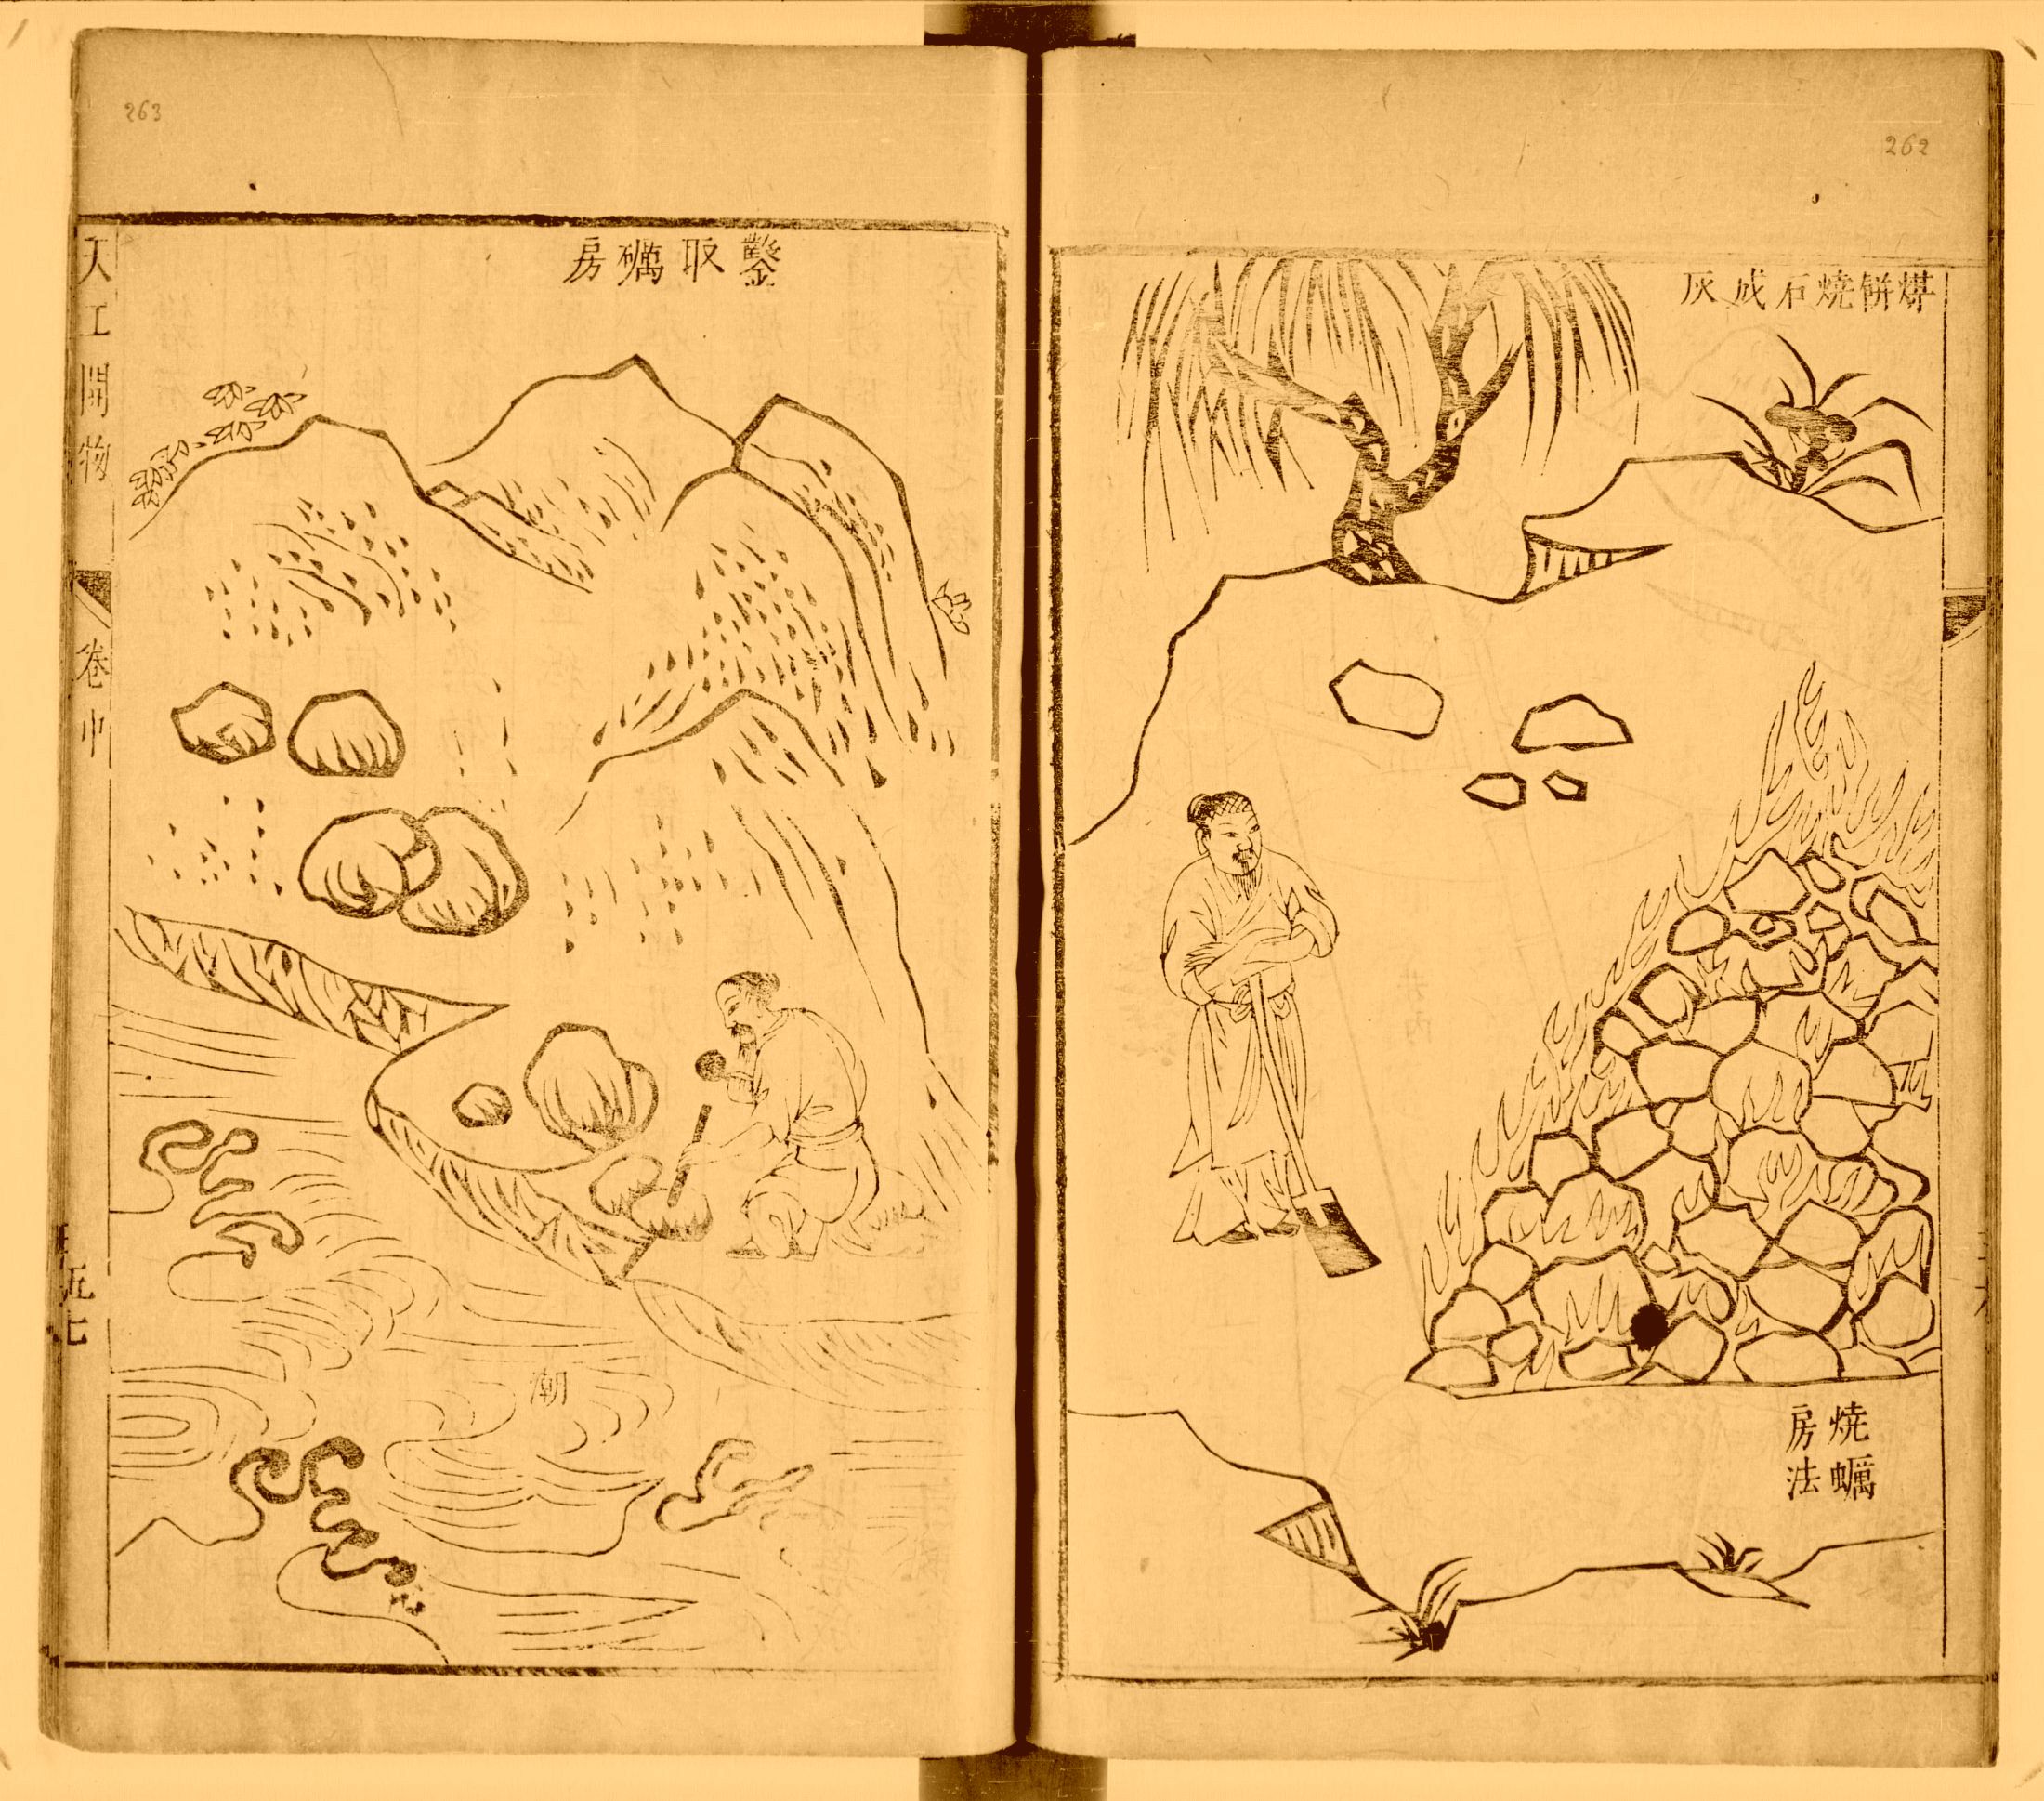 262
煤餅燒石成灰
燒蠣
房法
263
鑿取礪房
潮
天工開物
卷中
五七